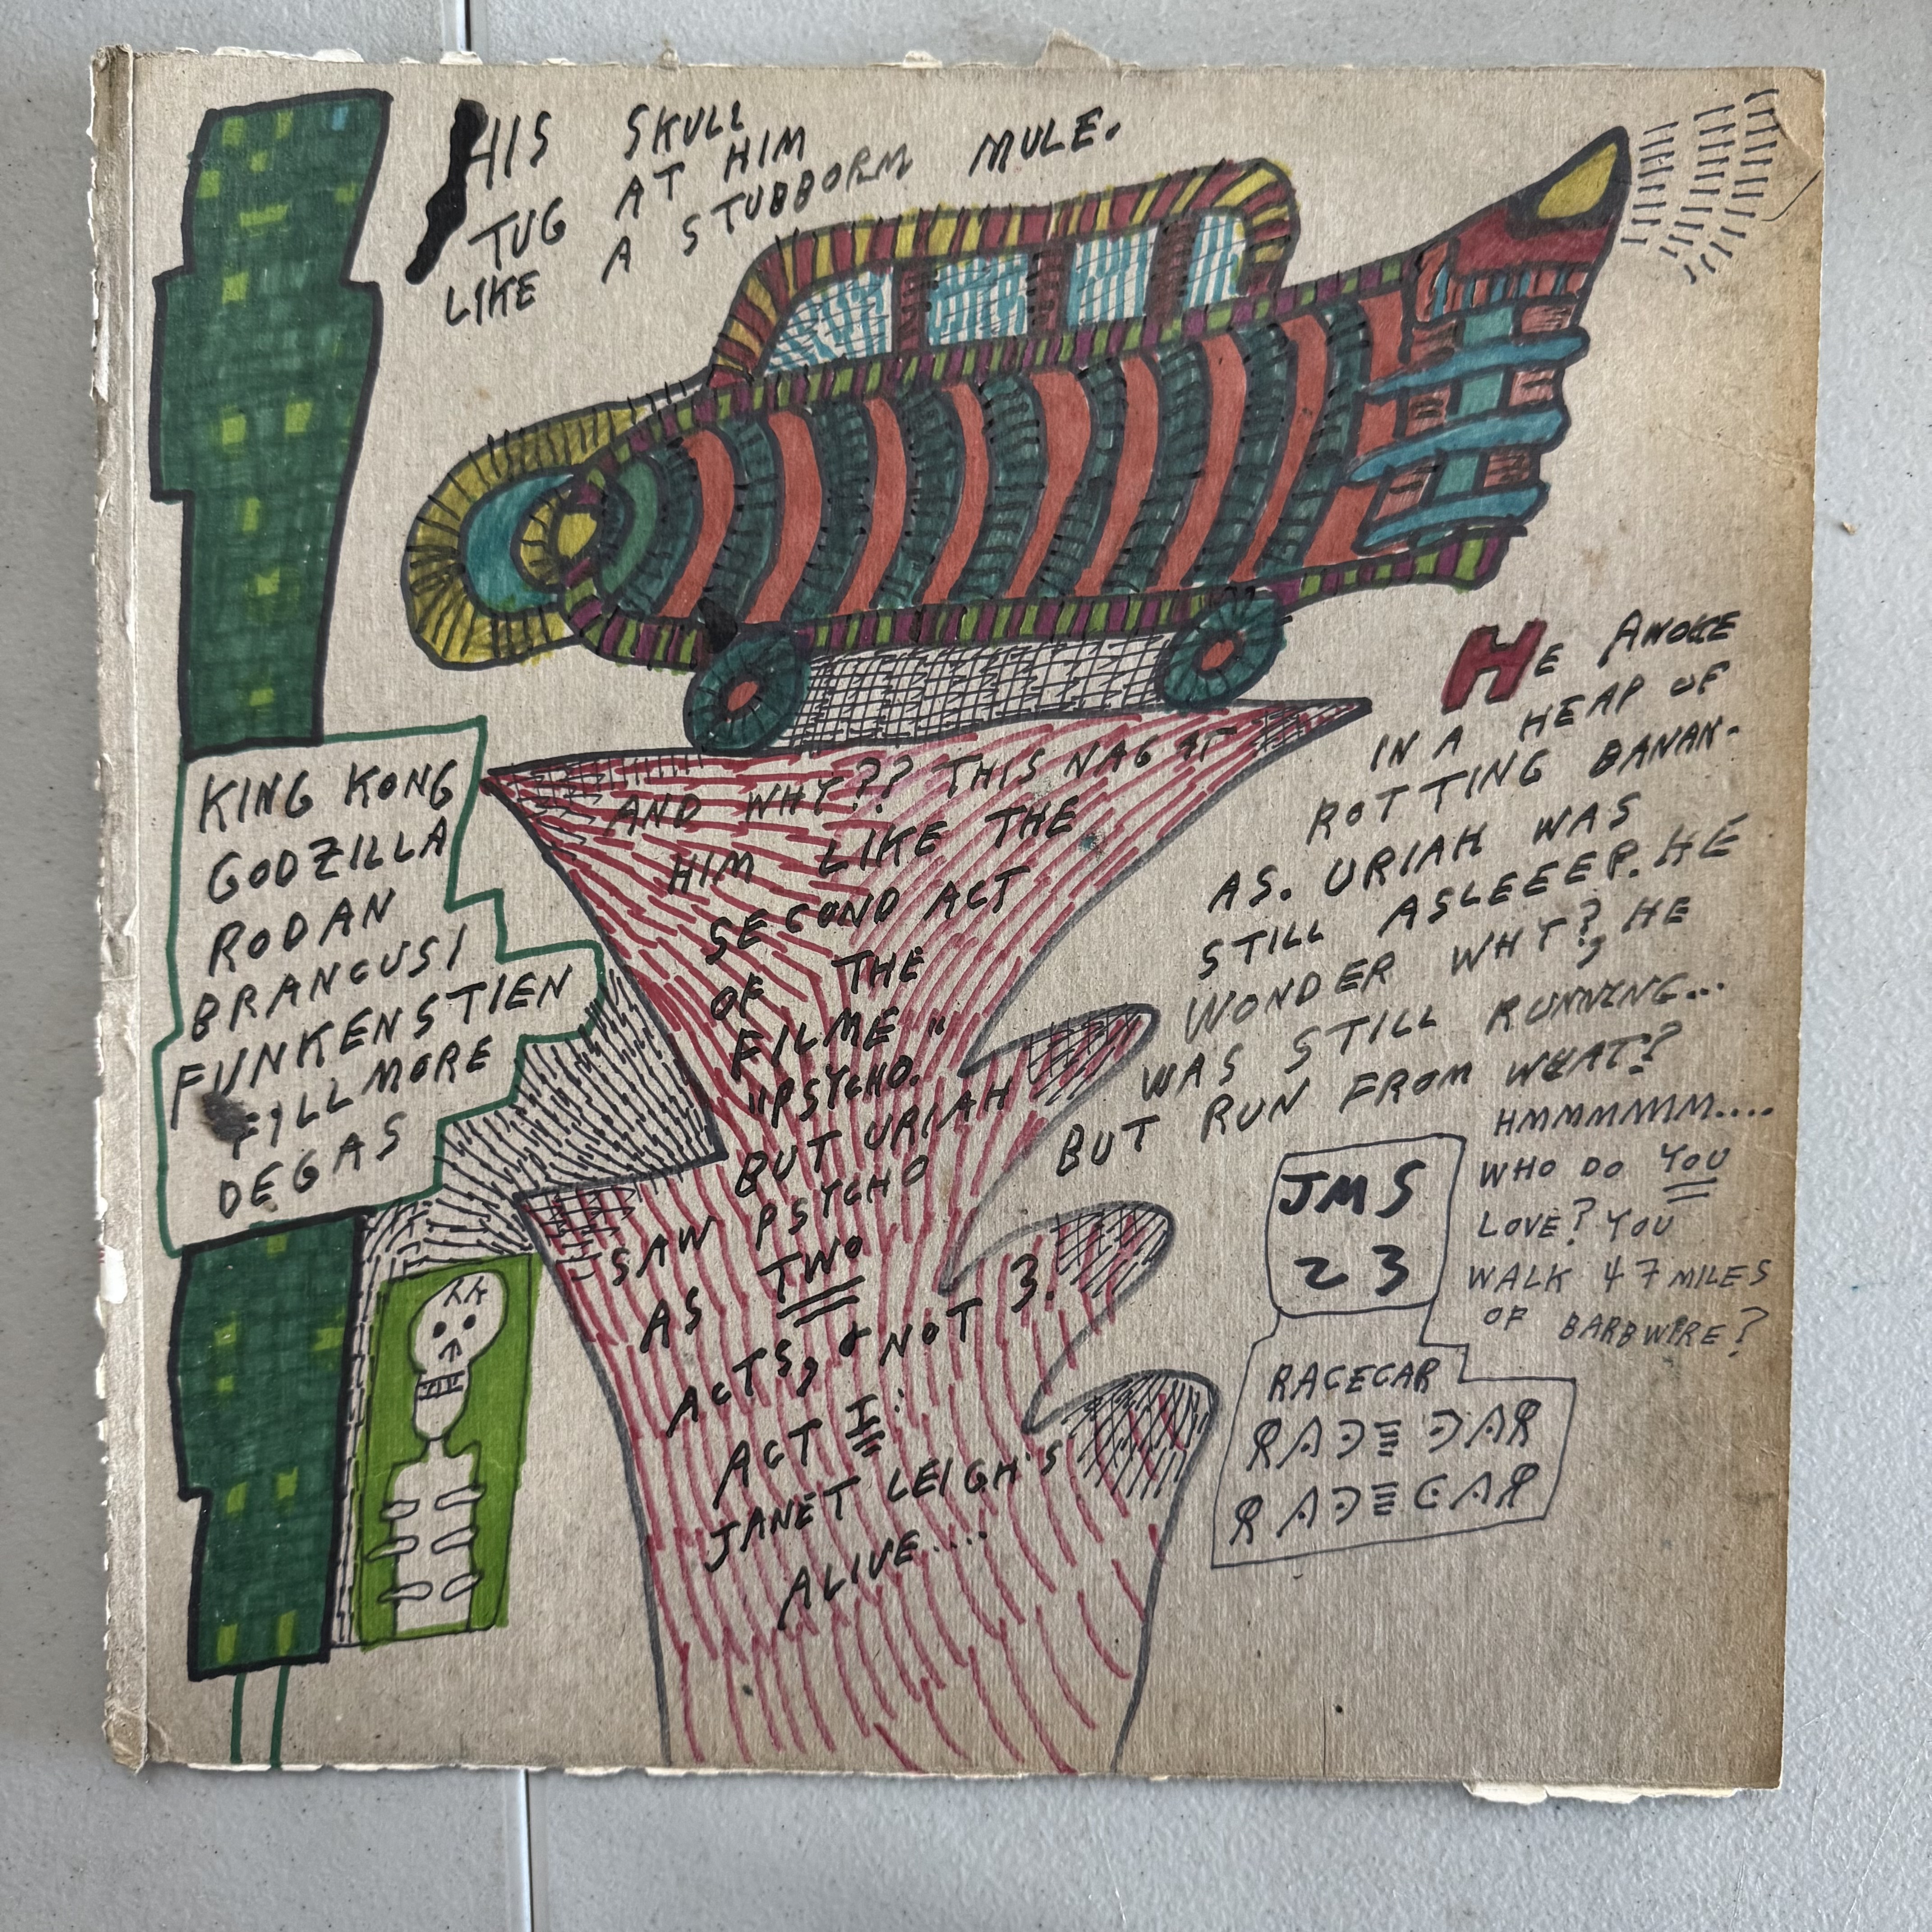 HIS SKULL
TUG AT HIM
LIKE A STUBBORM MULE.
HE AWOKE
IN A HEAP OF
ROTTING BANAN-
AS. URIAH WAS
STILL ASLEEEP. HE
WONDER WHY?, HE
WAS STILL RUNNING...
BUT RUN FROM WHAT?
HMMMMMM....
WHO DO YOU
LOVE? YOU
WALK 47 MILES
OF BARBWIRE?
KING KONG
GODZILLA
RODAN
BRANCUSI
FUNKENSTIEN
FILLMORE
DEGAS
AND WHY?? THIS NAG AT
HIM LIKE THE
SECOND ACT
OF THE
FILME "
"PSYCHO.
BUT URIAH
SAW PSYCHO
AS TWO
ACTS, & NOT 3.
ACT I:
JANET LEIGH'S
ALIVE....
JMS
23
RACECAR
RACECAR
RACECAR